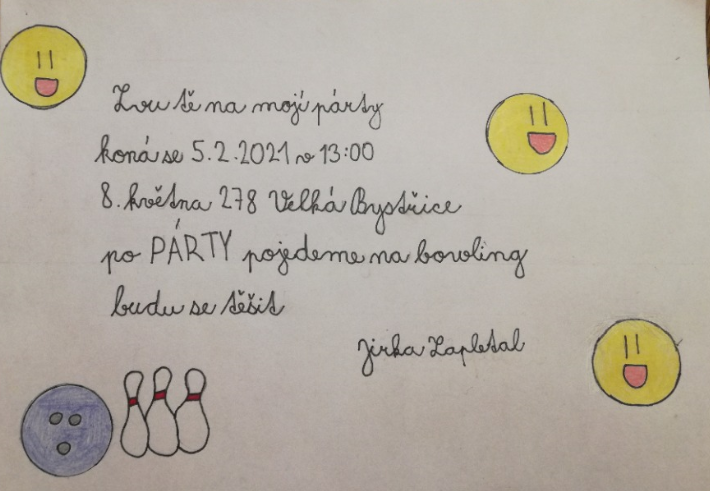 Zvu tě na mojí párty
koná se 5.2.2021 v 13:00
8. května 278 Velká Bystřice
po PÁRTY pojedeme na bowling
budu se těšit
Jirka Zapletal